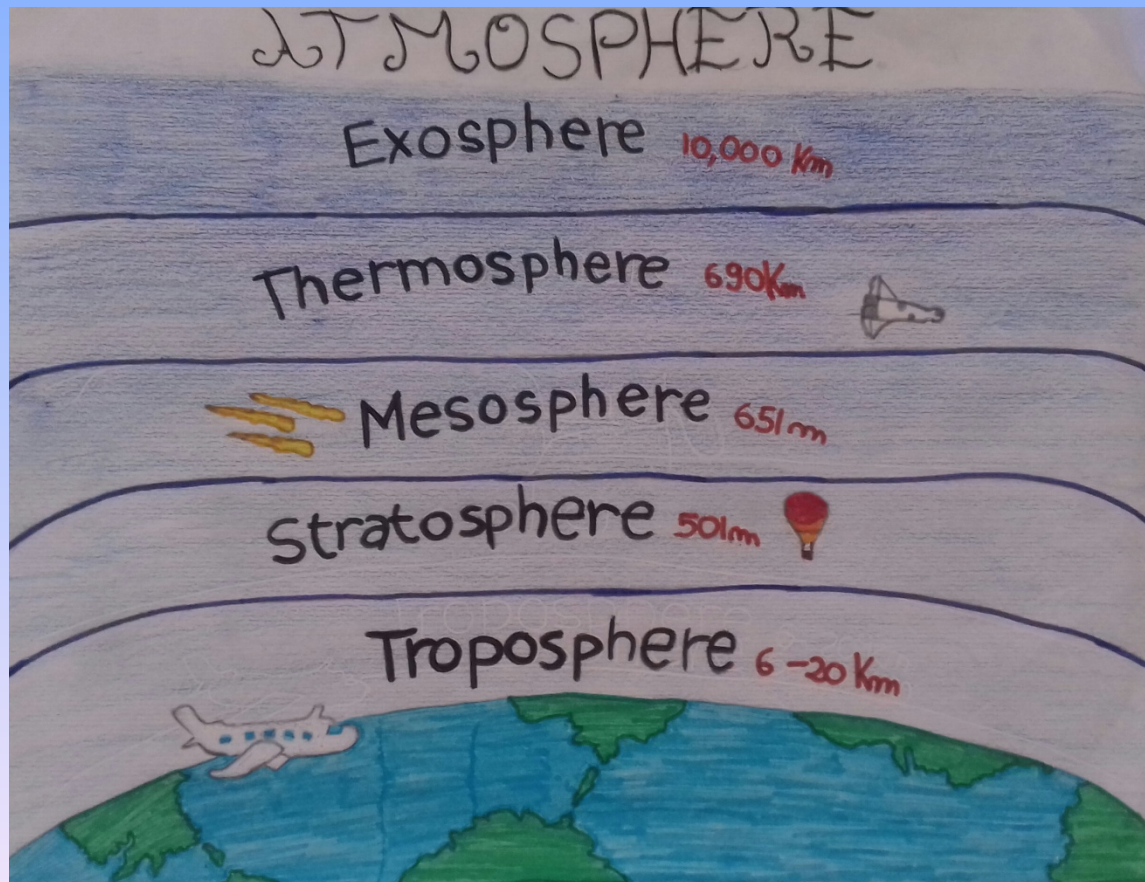 ATMOSPHERE
Exosphere 10,000 Km
Thermosphere 690Km
Mesosphere 651m
Stratosphere 501m
Troposphere 6-20 Km